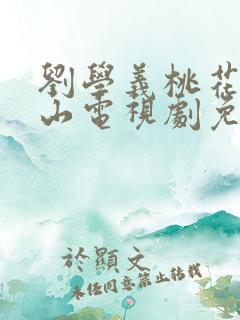 劉學義桃花
山電視劇免
於顯文
未經同意禁止轉載